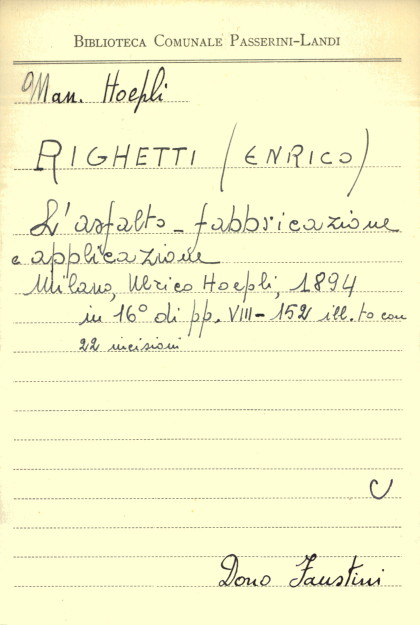 BIBLIOTECA COMUNALE PASSERINI-LANDI
Man. Hoepli
RIGHETTI (ENRICO)
L'asfalto - fabbricazione
e applicazione
Milano, Ulrico Hoepli, 1894
in 16° di pp. VIII-152 ill.to con
22 incisioni
C
Dono Faustini